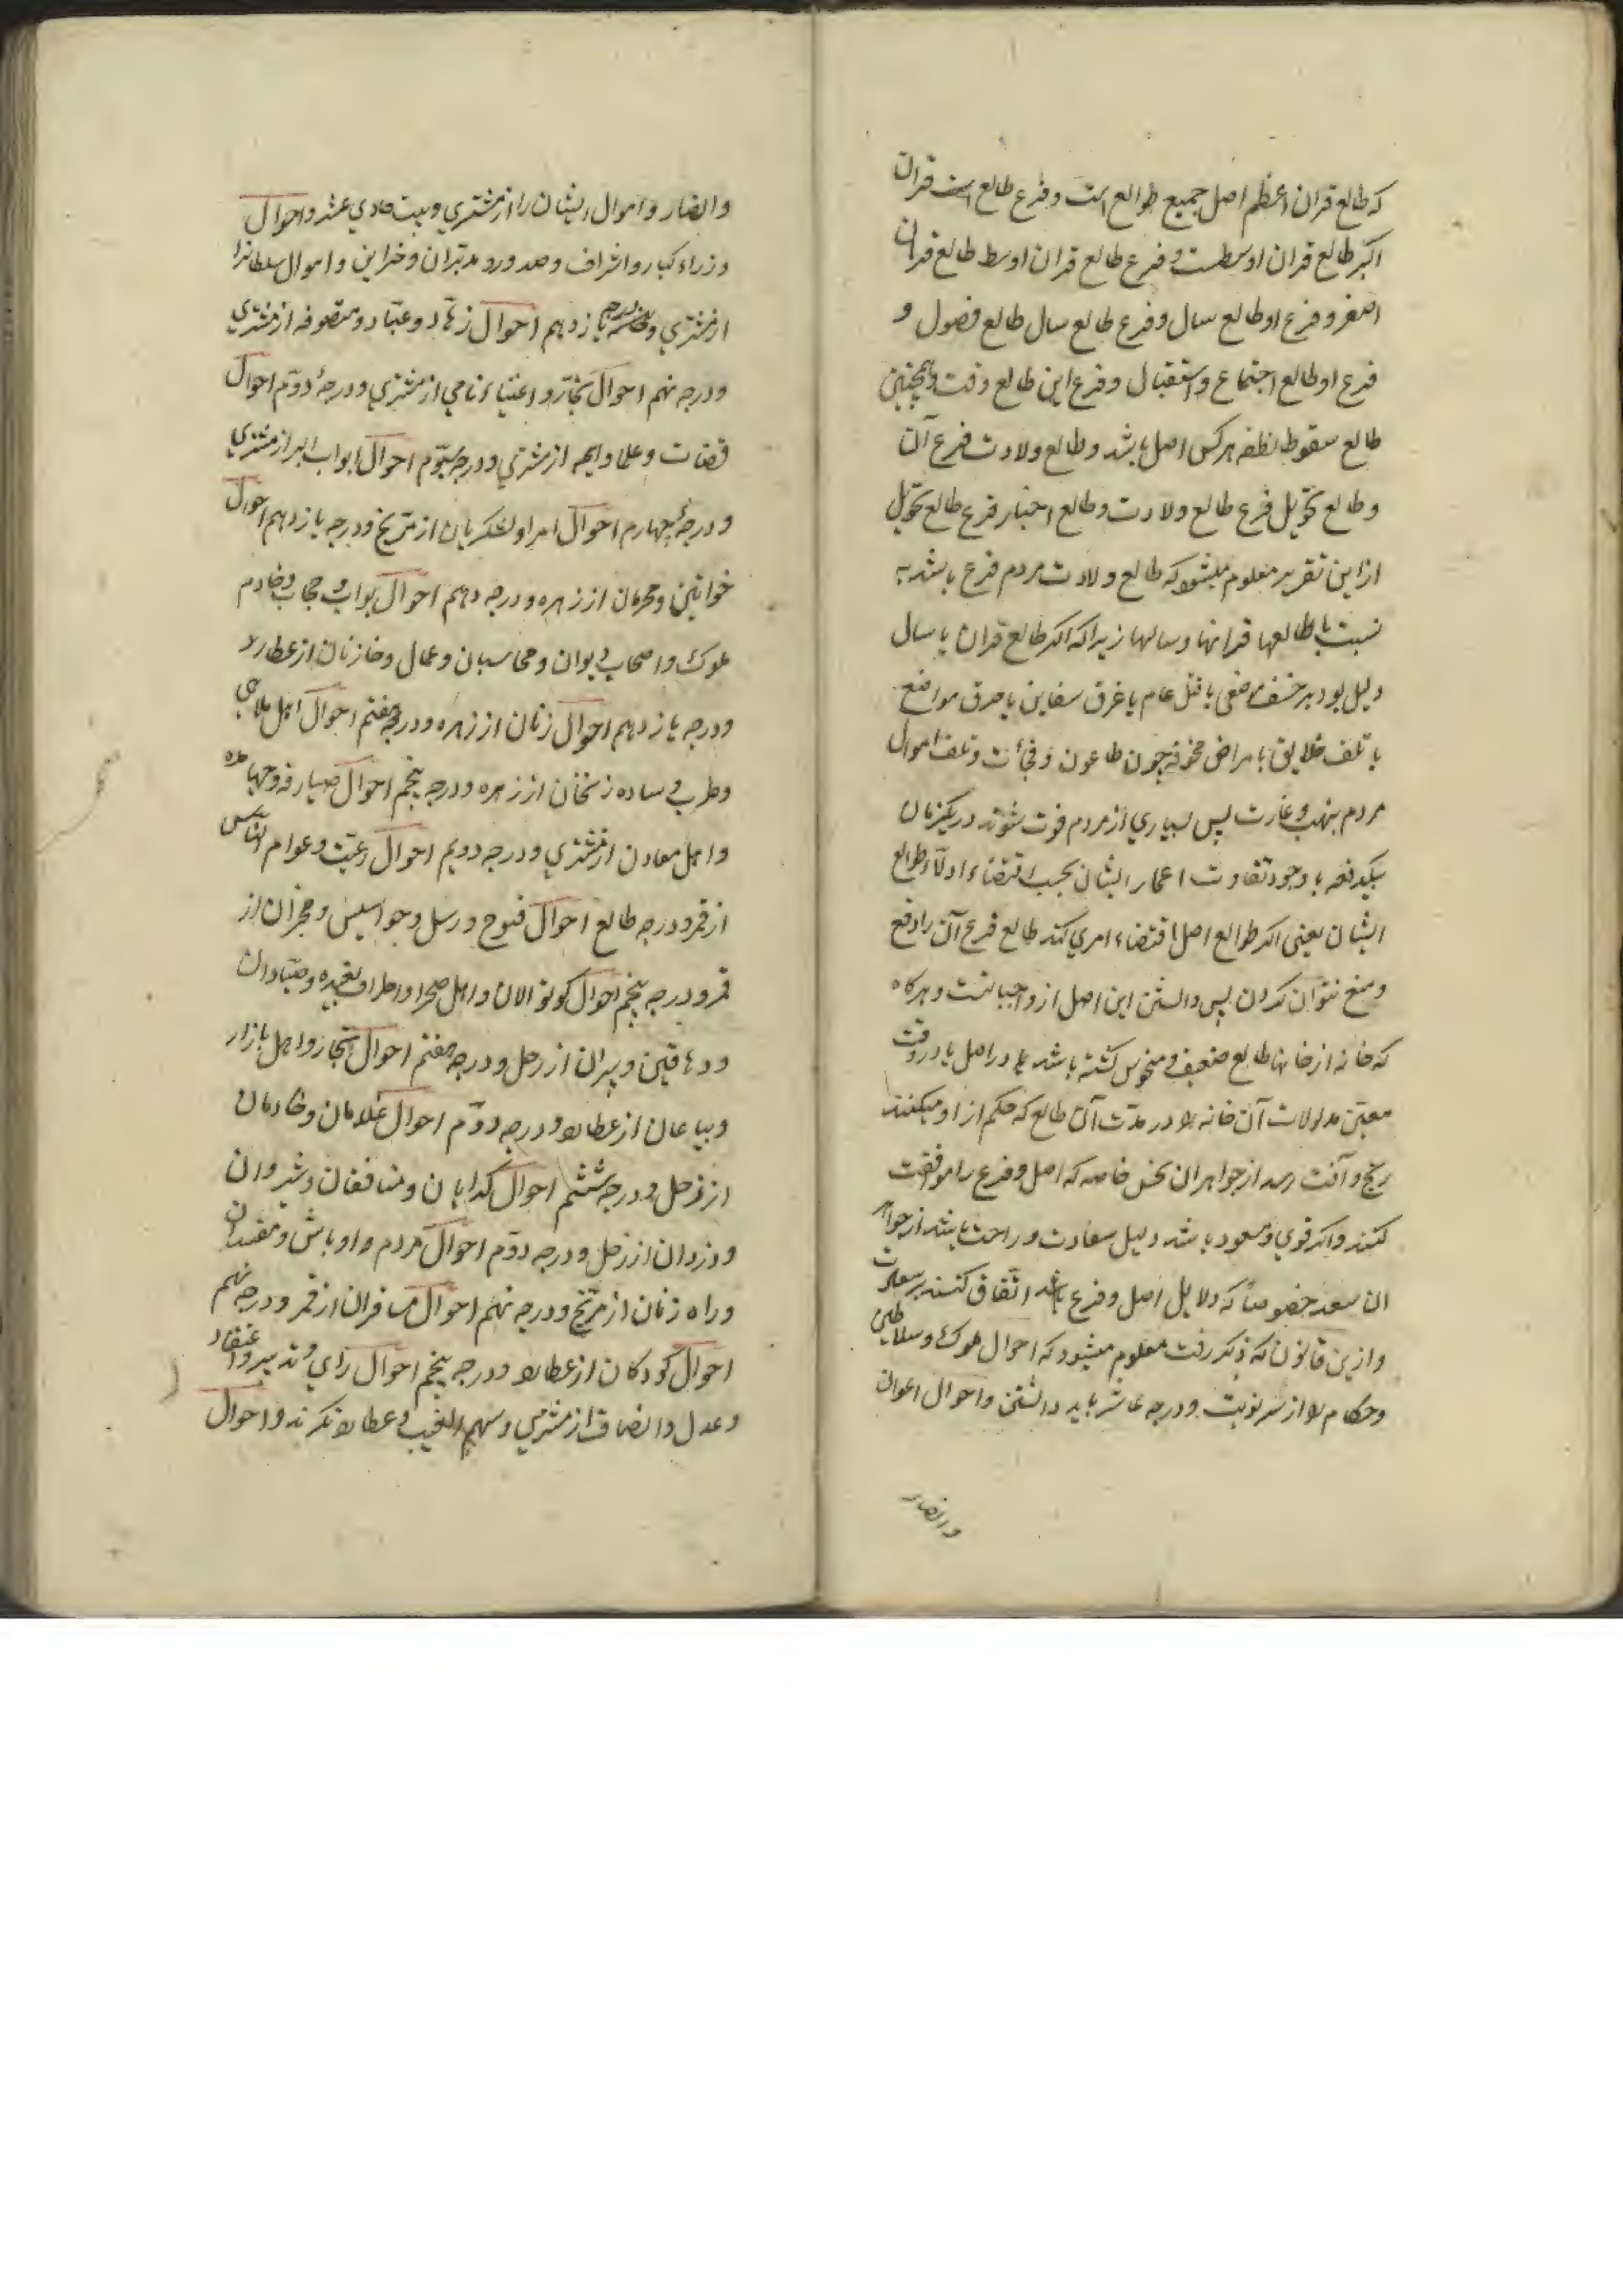 که طالع قران اعظم اصل جمیع طوالع است و فرع طالع است قران
اکبر طالع قران اوسطست و فرع طالع قران اوسط طالع قران
اصغر و فرع او طالع سال و فرع طالع سال طالع فصول و
فرع او طالع اجتماع و استقبال و فرع این طالع وقت و همچنین
طالع سقوط نطفه هرکس اصل باشد و طالع ولادت فرع آن
و طالع تحویل فرع طالع ولادت و طالع اختیار فرع طالع تحویل
ازاین تقریر معلوم میشود که طالع ولادت مردم فرع باشد به
نسبت با طالعها قرانها و سالها زیرا که اکر طالع قران یا سال
دلیل بود بر خسف موضعی یا قتل عام یا غرق سفاین یا حرق مواضع
یا تلف خلایق بامراض مخوفه چون طاعون و فجأت و تلف اموال
مردم بنهب و غارت پس بسیاری از مردم فوت شوند در یکزمان
بیکدفعه با وجود تفاوت اعمار ایشان بحسب اقتضاء ادلّاء طوالع
ایشان یعنی اکر طوالع اصل اقتضاء امری کند طالع فرع آن را دفع
و منع نتوان کردن پس دانستن این اصل از واجباتست و هرکاه
که خانه از خانها طالع ضعیف و منحوس کشته باشد در اصل یا در وقت
معیّن مدلولات آن خانه را در مدّت آن طالع که حکم از او میکنند
رنج و آفت رسد از جواهران نحس خاصه که اصل و فرع را موافقت
کنند و اکر قوی و مسعود باشد دلیل سعادت و راحت باشد از جواهر
ان سعد خصوصاً که دلایل اصل و فرع باشد اتّفاق کنند بر سعادت
و ازین قانون که ذکر رفت معلوم میشود که احوال ملوک و سلاطین
و حکام را از سر نوبت و درجه عاشر باید دانستن و احوال اعوان
و انصار
و انصار و اموال ایشان را از مشتری و بیت حادی عشر و احوال
وزراء کبار و اشراف و صدور و مدبّران و خزاین و اموال سلطانرا
از مشتری و درجه یازدهم احوال زهّاد و عبّاد و متصوفه از مشتری
و درجه نهم احوال تجّار و اغنیاء نامی از مشتری و درجهٔ دوّم احوال
قضات و علما و ایمه از مشتری و درجه سیّوم احوال ابواب البر از مشتری
و درجهٔ چهارم احوال امرا و لشکریان از مرّیخ و درجه یازدهم احوال
خواتین و محرمان از زهره و درجه دهم احوال بوّاب و حجاب و خادم
ملوک و اصحاب دیوان و محاسبان و عمال و خازنان از عطارد
و درجه یازدهم احوال زنان از زهره و درجه هفتم احوال اهل ملاهی
و طرب و ساده زنخان از زهره و درجه پنجم احوال صیارفه و جهابذه
و اهل معادن از مشتری و درجه دویم احوال رعیّت و عوام النّاس
از قمر و درجه طالع احوال فتوح و رسل و جواسیس و مخبران از
قمر و درجه پنجم احوال کوتوالان و اهل صحرا و اطراف بعیده و صیّادان
و دهاقین و پیران از زحل و درجه هفتم احوال تجّار و اهل بازار
و بیاعان از عطارد و درجه دوّم احوال غلامان و خادمان
از زحل و درجه ششم احوال کدایان و منافقان و شبروان
و دزدان از زحل و درجه دوّم احوال مردم و اوباش و مفسدان
و راه زنان از مرّیخ و درجه نهم احوال مسافران از قمر و درجه نهم
احوال کودکان از عطارد و درجه پنجم احوال رای و تدبیر و اعتقاد
و عدل و انصاف از مشتری و سهم الغیب و عطارد نکرند و احوال